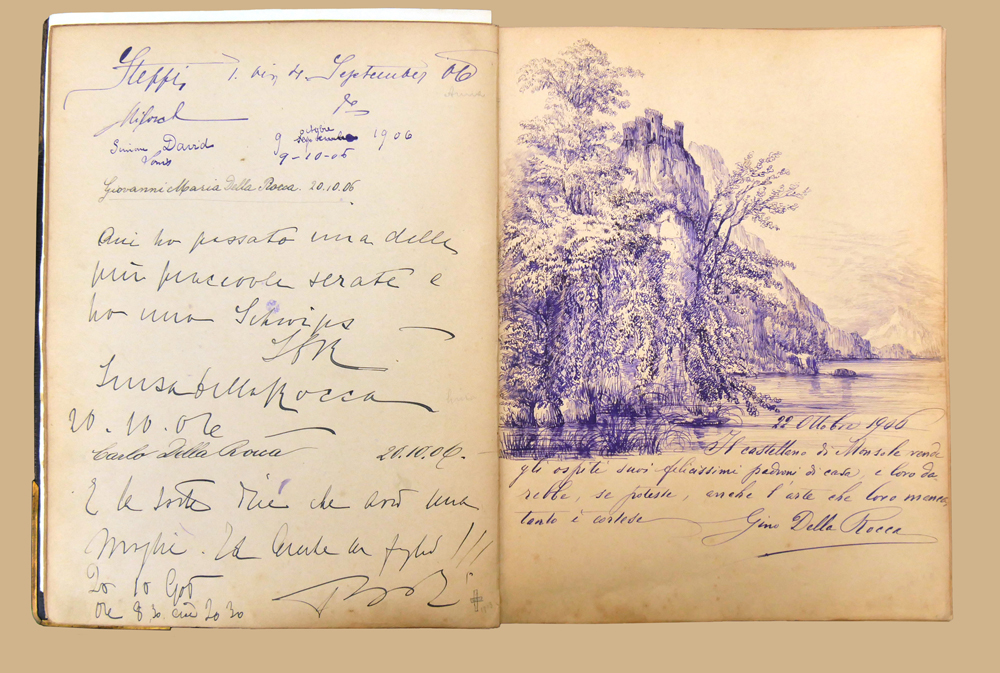 Steffi 1. bis 4. September 06
Simon David 9 octobre 1906
9-10-06
Giovanni Maria Della Rocca. 20.10.06
Qui ho passato una delle
più piacevole serate e
ho una Schwips
Luisa della Rocca
20.10.06
Carlo Della Rocca 20.10.06.
E la sorte dice che avrò una
Moglie. Ed anche un figlio !!!
20 10 906
ore 8,30 cioè 20 30
22 Ottobre 1906
Il castellano di Monsole rende
gli ospiti suoi felicissimi padroni di casa, e loro da
rebbe, se potesse, anche l'arte che loro manca,
tanto è cortese
Gino Della Rocca